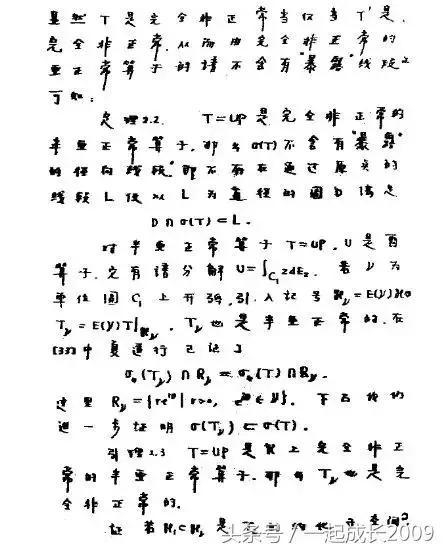 显然 T 是完全非正常当仅当 T' 是
完全非正常. 从而由完全非正常的
亚正常算子的谱不会有"暴露"线段立
可知:
定理2.2. T=UP 是完全非正常的
半亚正常算子, 那么 σ(T) 不会有"暴露"
的径向线段, 即不存在通过原点的
线段 L 使以 L 为直径的圆 D 满足
D∩σ(T)⊂L.
对半亚正常算子 T=UP, U 是酉
算子, 它有谱分解 U=∫_{C₁} z dE_z. 若 γ 为
单位圆 C₁ 上开弧, 引入记号 𝓗_γ=E(γ)𝓗
T_γ=E(γ)T|_{𝓗_γ}, T_γ 也是半亚正常的. 在
[33]中夏道行已证了
σₐ(T_γ)∩R_γ=σₐ(T)∩R_γ.
这里 R_γ={re^{iθ}|r>0, e^{iθ}∈γ}. 下面我们
进一步证明 σ(T_γ)⊂σ(T).
引理2.3 T=UP 是 𝓗 上完全非正
常的半亚正常算子, 那么 T_γ 也是完
全非正常的.
证 若 𝓗₁⊂𝓗_γ 是 T_γ 的约化子空间
头条号 / 一起成长2009